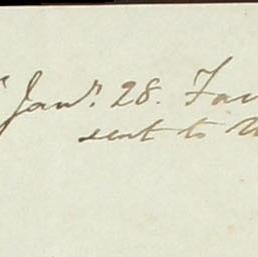 "Janr. 28. Fav
sent to